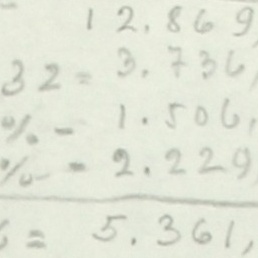 12.869,
32 = 3.736,
% - 1.506,
% - 2.229,
= 5.361,